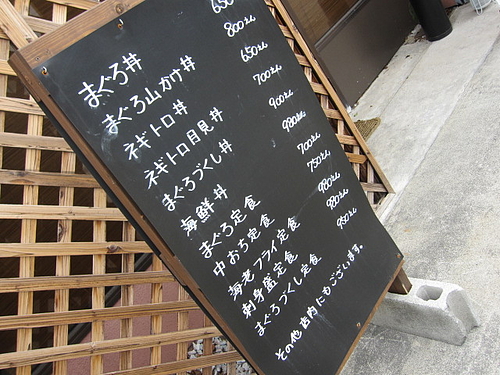 まぐろ丼 650
まぐろ山かけ丼 800えん
ネギトロ丼 650えん
ネギトロ月見丼 700えん
まぐろづくし丼 900えん
海鮮丼 980えん
まぐろ定食 700えん
中おち定食 750えん
海老フライ定食 980えん
刺身盛定食 980えん
まぐろづくし定食 950えん
その他店内にもございます。